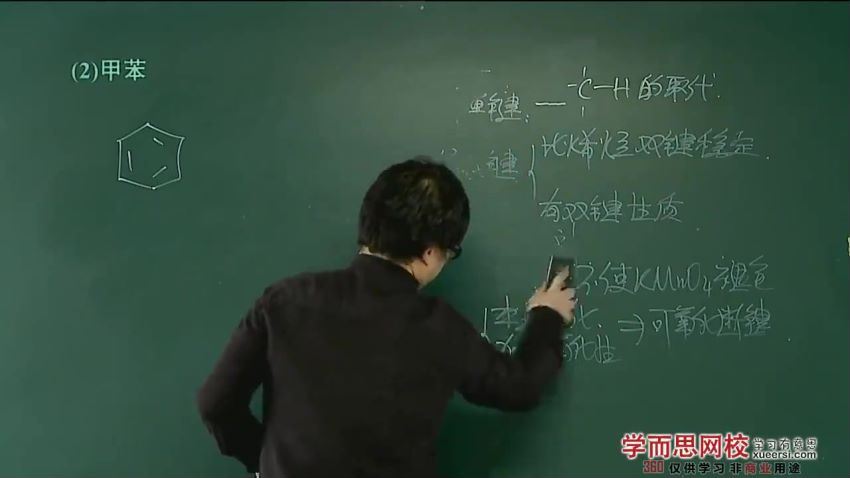 (2)甲苯
单键 — -C-H 的取代.
键 { 比烯烃双键稳定.
有双键性质.
不使KMnO4褪色
⇒可氧化断键
学而思网校 学习有意思
xueersi.com
360 仅供学习 非商业用途